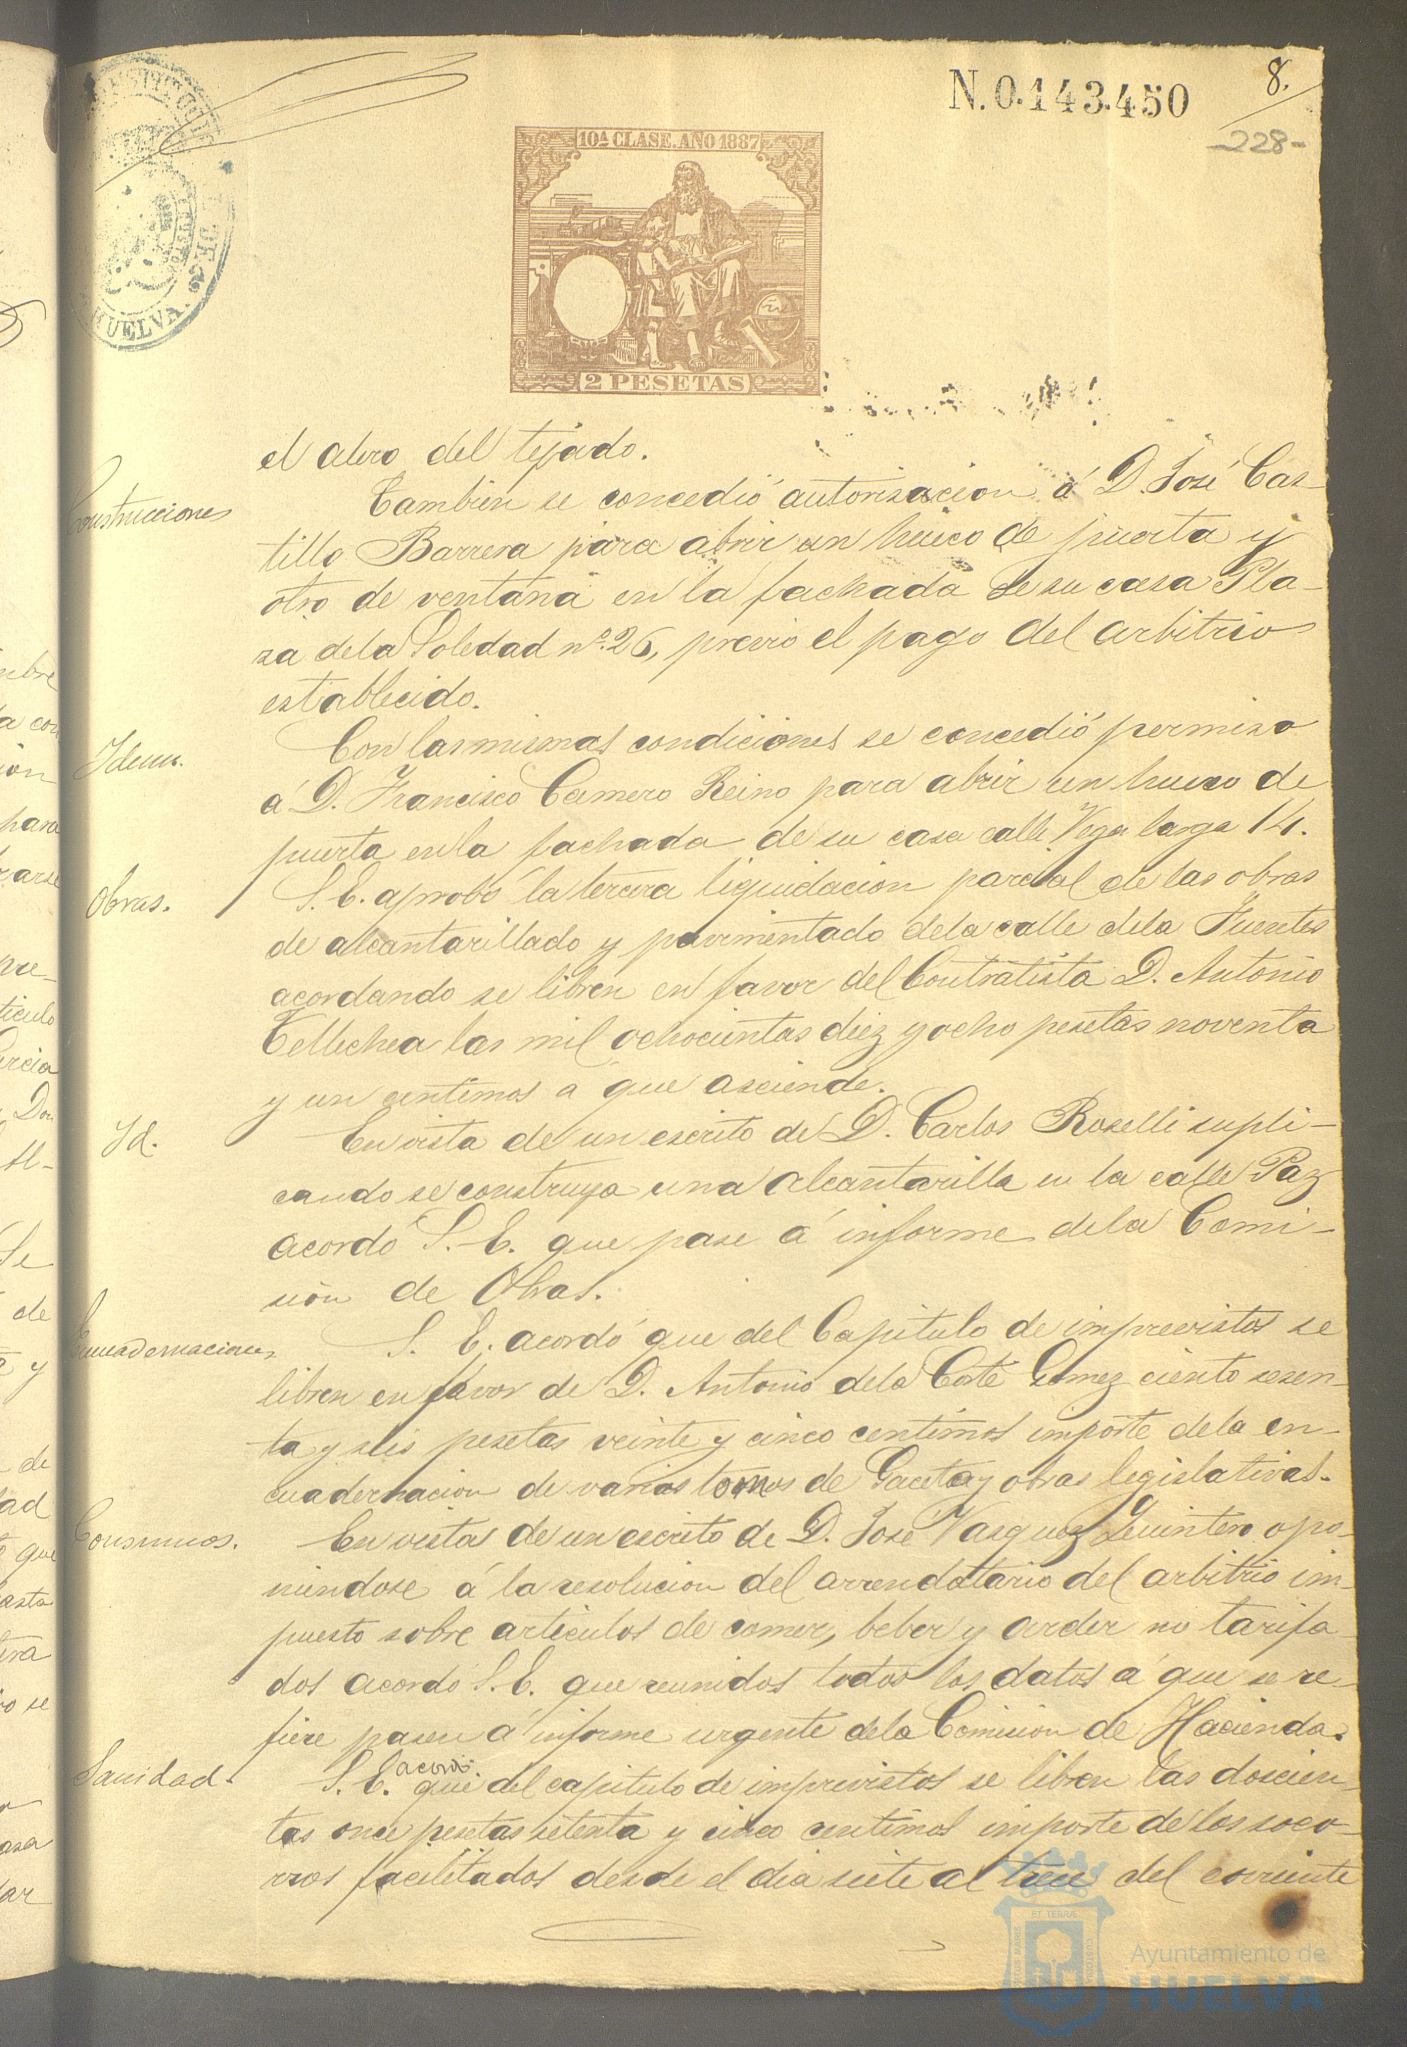 N. 0.143.450
8.
228-
10ª CLASE. AÑO 1887
2 PESETAS
HUELVA
el alero del tejado.
Construcciones
Tambien se concedió autorisacion á D. José Cas-
tillo Barrera para abrir un hueco de puerta y
otro de ventana en la fachada de su casa Pla-
za dela Soledad nº 26, previo el pago del arbitrio
establecido.
Idem.
Con las mismas condiciones se concedió permiso
á D. Francisco Camero Reino para abrir un hueco de
puerta enla fachada de su casa calle Vega larga 14.
Obras.
S. E. aprobó la tercera liquidacion parcial de las obras
de alcantarillado y pavimentado dela calle dela Fuentes
acordando se libren en favor del Contratista D. Antonio
Tellechea las mil ochocientas diez y ocho pesetas noventa
y un centimos á que asciende.
Id.
En vista de un escrito de D. Carlos Roselli supli-
cando se construya una alcantarilla en la calle Paz
acordó S. E. que pase á informe dela Comi-
sión de Obras.
Encuadernaciones
S. E. acordó que del Capitulo de imprevistos se
libren en favor de D. Antonio dela Corte Gomez ciento sesen-
ta y seis pesetas veinte y cinco centimos importe dela en-
cuadernacion de varios tomos de Gaceta y obras legislativas.
Consumos.
En vista de un escrito de D. José Vasquez Quintero opo-
niendose á la resolucion del arrendatario del arbitrio im-
puesto sobre articulos de comer, beber y arder no tarifa-
dos acordó S. E. que reunidos todos los datos á que se re-
fiere pasen á informe urgente dela Comision de Hacienda.
Sanidad.
acordó
S. E. que del capitulo de imprevistos se libren las doscien-
tas once pesetas setenta y cinco centimos importe de los soco-
rros facilitados desde el dia siete al trece del corriente
Ayuntamiento de
HUELVA